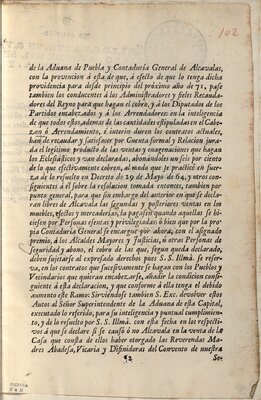 102
de la Aduana de Puebla y Contaduría General de Alcavalas,
con la prevencion á esta de que, á efecto de que lo tenga dicha
providencia para desde principio del próximo año de 71, pase
tambien los conducentes á los Administradores y fieles Recaudadores
del Reyno para que hagan el cobro, y á los Diputados de los
Partidos encabezados y á los Arrendadores: en la inteligencia
de que todos estos, ademas de las cantidades estipuladas en el Cabezon
ó Arrendamiento, é interin duren los contratos actuales,
han de recaudar y satisfacer por Cuenta formal y Relacion jurada
el legítimo producto de las ventas y enagenaciones que hagan
los Eclesiásticos y van declaradas, abonándoles un seis por ciento
de lo que efectivamente cobren, al modo que se practicó en fuerza
de lo resuelto en Decreto de 30 de Mayo de 64, y otros consiguientes
á él sobre la resolucion tomada entonces, tambien por
punto general, para que sin embargo del anterior en que se declaran
libres de Alcavala las segundas y posteriores ventas en los
muebles, efectos y mercaderías, la paguen quando aquellas se hiciesen
por Personas esentas y privilegiadas ó bien que por la propia
Contaduría General se encargue por ahora, con el asignado
premio, á los Alcaldes Mayores y Justicias, ú otras Personas de
Seguridad y abono, el cobro de las que, segun queda declarado,
deben sujetarse al expresado derecho pues S. S. Illmâ. se reserva,
en los contratos que sucesivamente se hagan con los Pueblos y
Vecindarios que quieran encabezarse, añadir la condicion consiguiente
á esta declaracion, y que conforme á ella tenga el debido
aumento este Ramo: Sirviéndose tambien S. Exc. devolver estos
Autos al Señor Superintendente de la Aduana de esta Capital,
executado lo referido, para su inteligencia y puntual cumplimiento,
y de lo resuelto por S. S. Illmâ. con esta fecha en los respectivos
á que se declare si se causó ó no Alcavala en la venta de la
Casa que consta de ellos haber otorgado las Reverendas Madres
Abadesa, Vicaria y Difinidoras del Convento de nuestra
Se-
GARCIA